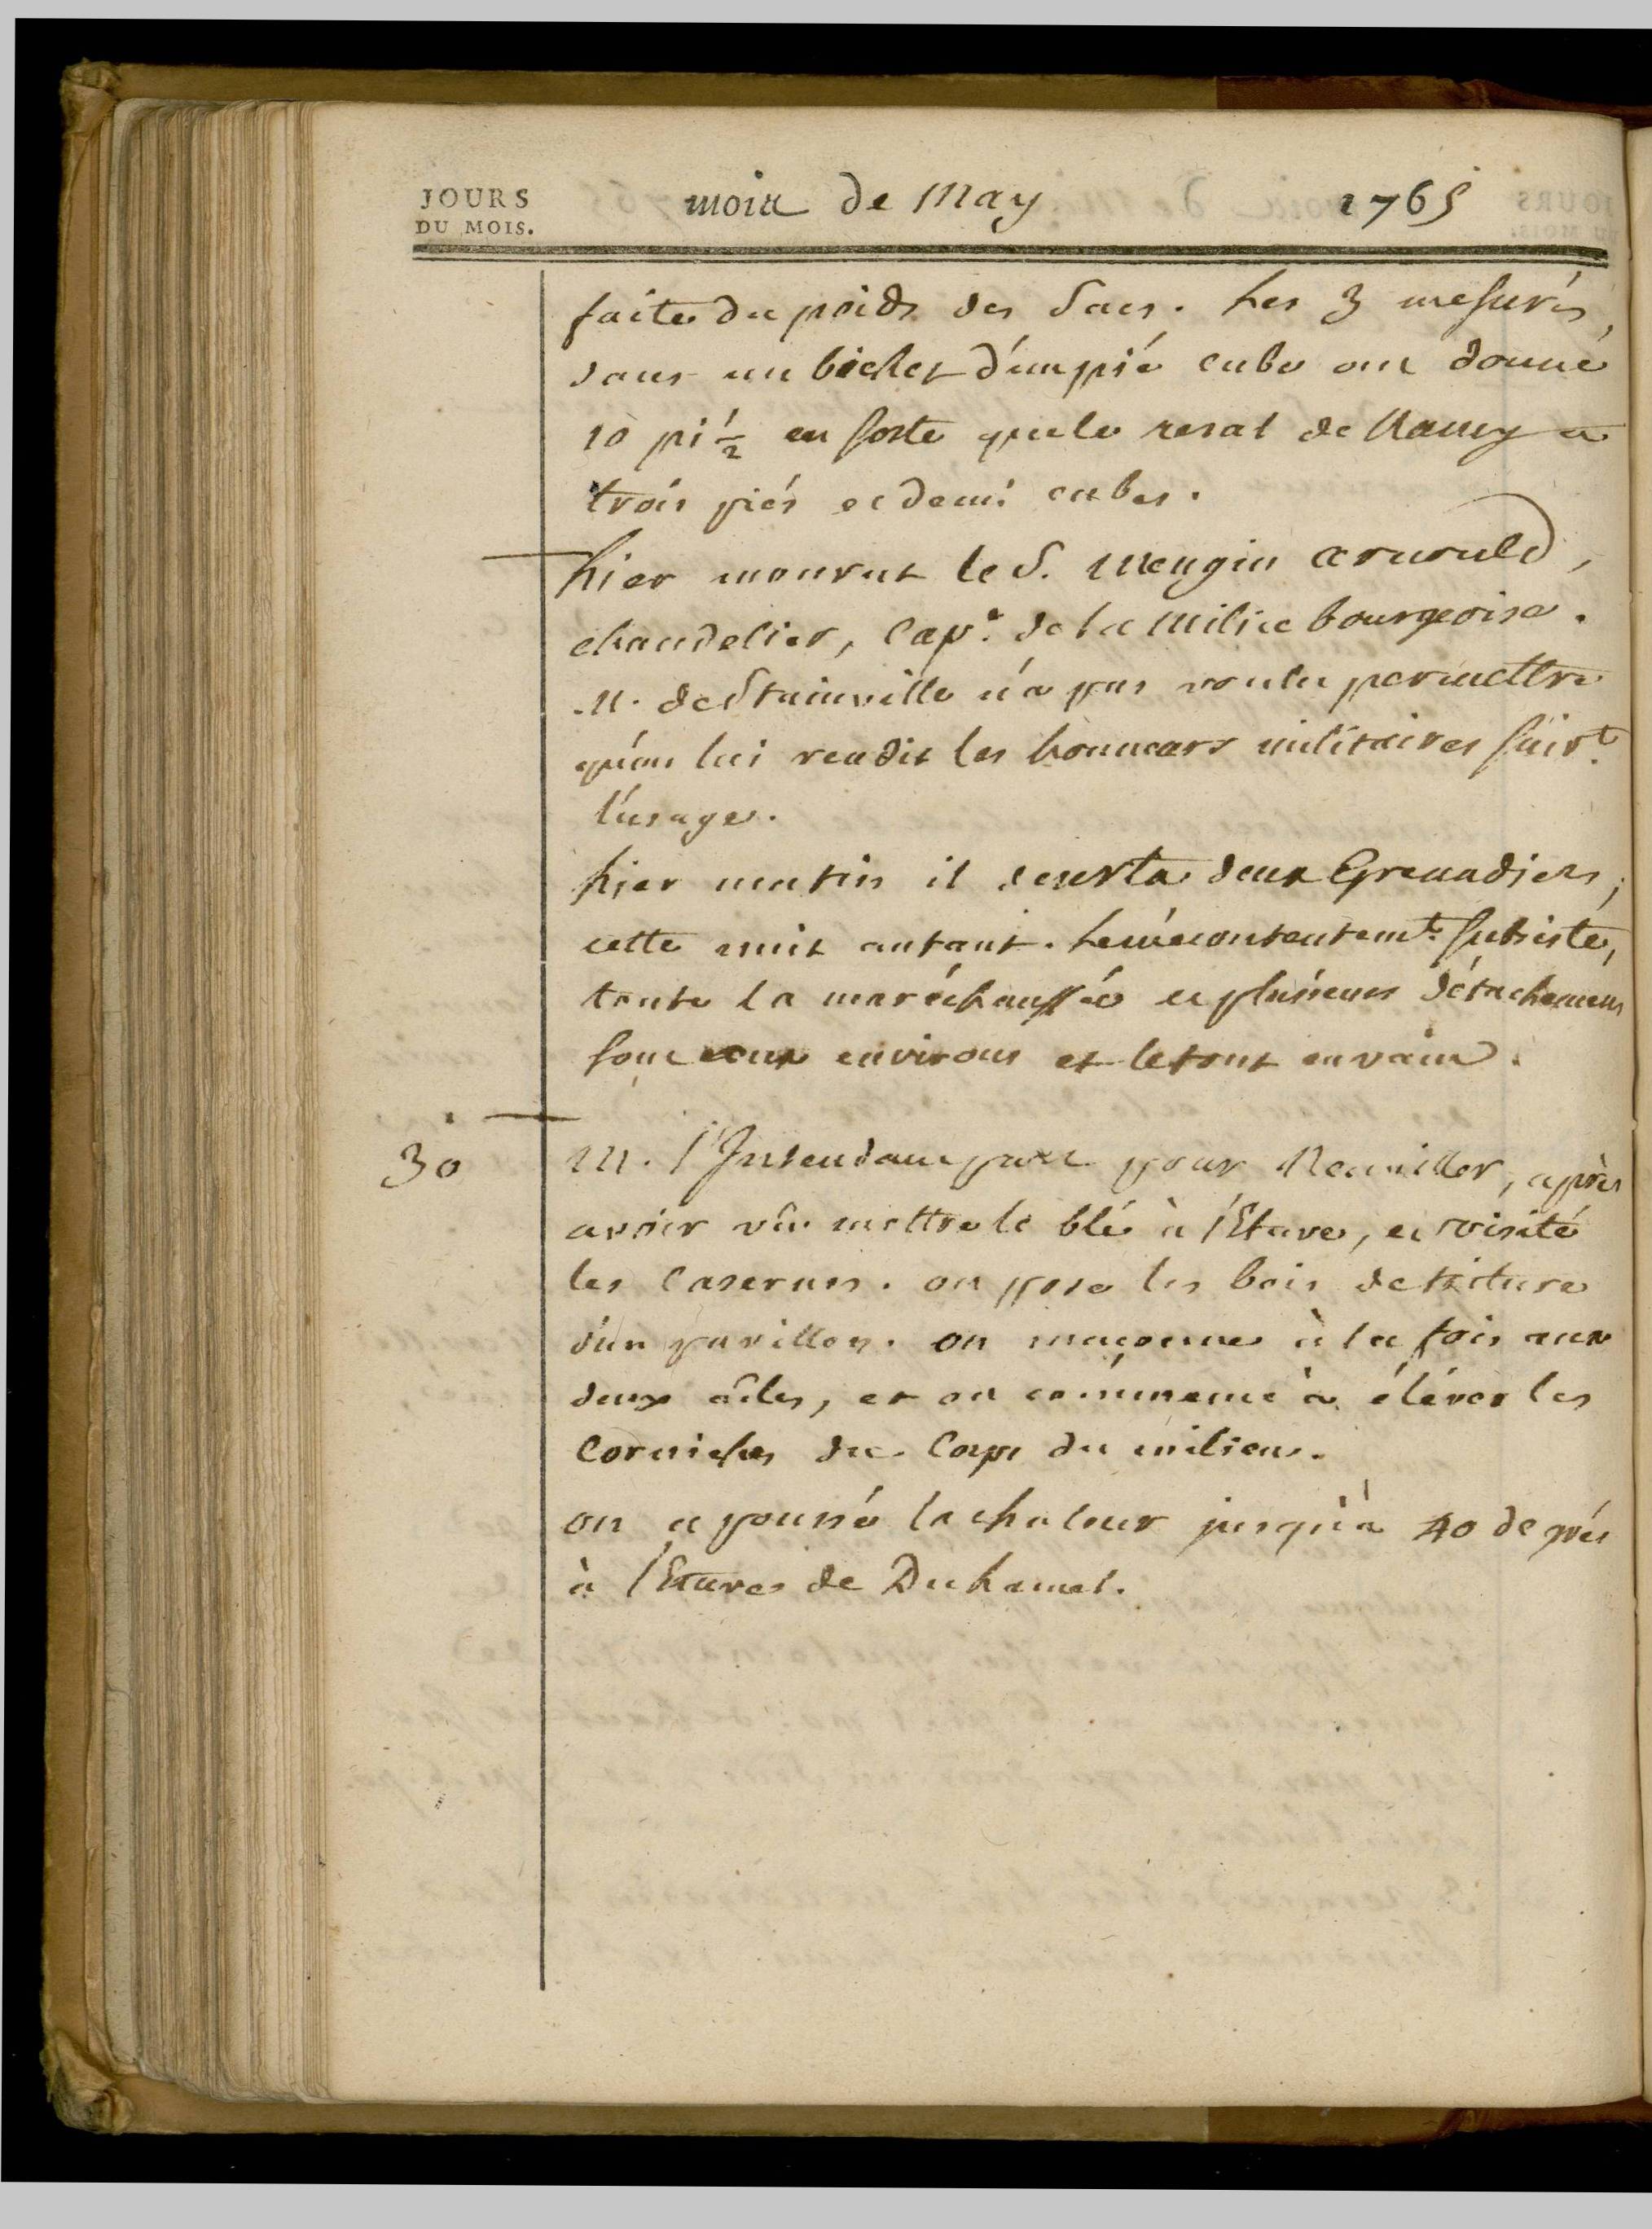 JOURS
DU MOIS.
mois de May 1765
faite du poids des sacs. Les 3 mesurés,
dans un bichet d'un pié cube ont donné
10 pi ½ en sorte que le resal de Nancy a
trois piés et demi cubes.
hier mourut le S. Mengin arnould,
chandelier, Cap.e de la Milice bourgeoise.
M. de Stainville n'a pas voulu permettre
qu'on lui rendit les honneurs militaires suiv.t
l'usage.
hier matin il deserta deux Grenadiers,
cette nuit autant. le mécontentem.t subsiste,
toute la maréchaussée et plusieurs détachemens
sont aux environs et le tout en vain.
30
M. l'Intendant part pour , après
avoir vû mettre le blé à l'Etuve, et visité
les Casernes. on pose les bois de
d'un pavillon. on maçonne à la fois aux
deux aîles, et on commence à élever les
Corniches du Corps du milieu.
on a poussé la chaleur jusqu'à 40 degrés
à l'Etuve de Duhamel.